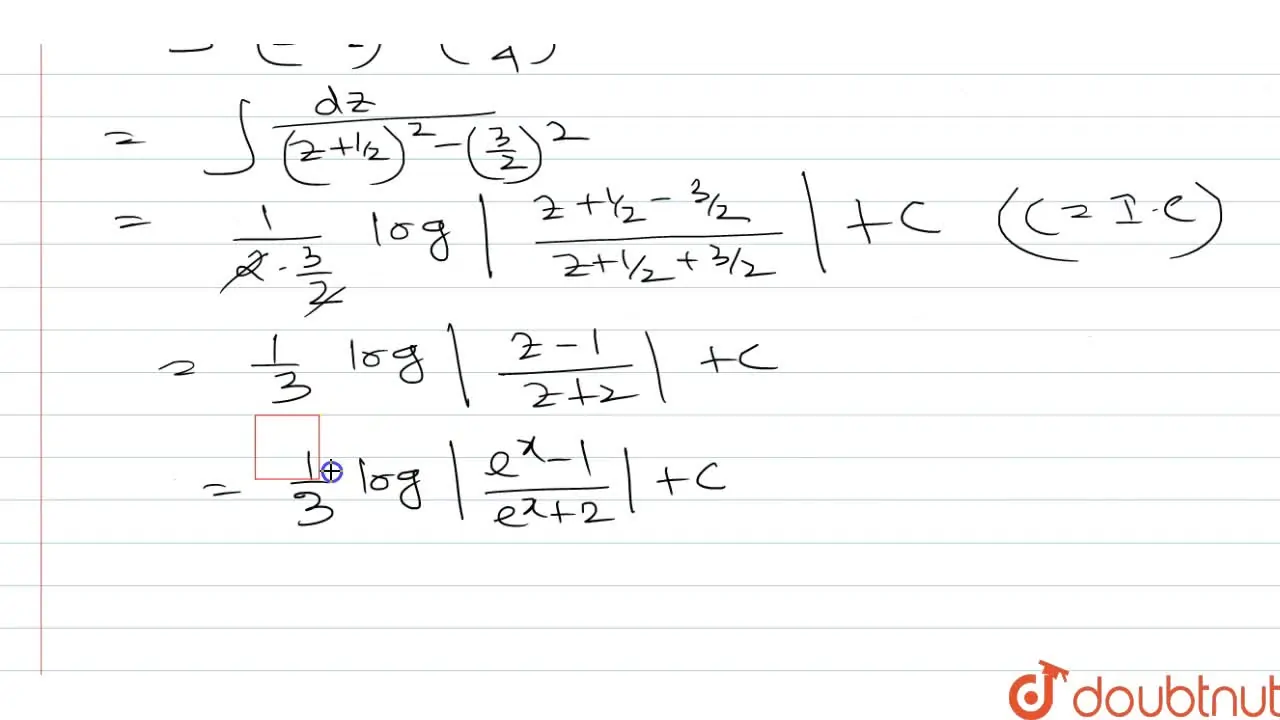 = ∫ dz / (z+1/2)² - (3/2)²
= 1 / 2·3/2 log | z+1/2-3/2 / z+1/2+3/2 | +C (C = I.C)
= 1/3 log | z-1 / z+2 | +C
= 1/3 log | e^x-1 / e^x+2 | +C
doubtnut